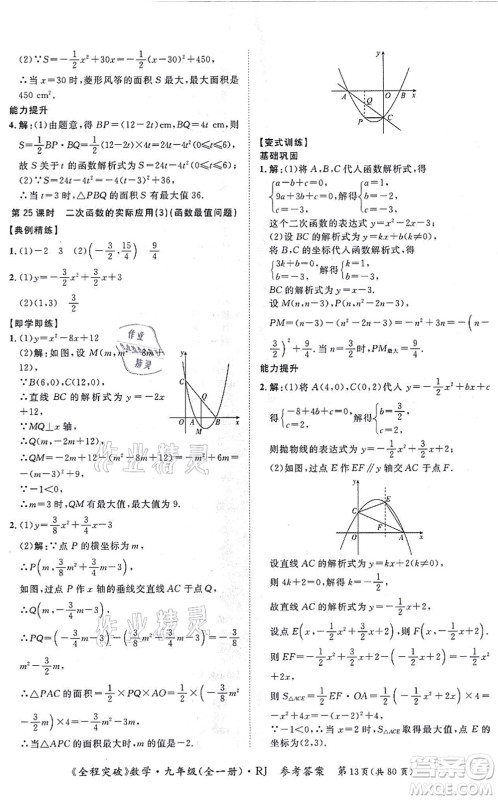 (2)∵S=-1/2x²+30x=-1/2(x-30)²+450,
∴当x=30时,菱形风筝的面积S最大,最大值是
450 cm².
能力提升
4.解:(1)由题意,得BP=(12-2t)cm,BQ=4t cm.
∴S=1/2BP·BQ=1/2(12-2t)·4t=24t-4t²(0≤t≤6).
故S关于t的函数解析式为S=24t-4t²(0≤t≤6).
(2)∵S=24t-4t²=-4(t-3)²+36(0≤t≤6),
∴当t=3时,S有最大值36.
第25课时 二次函数的实际应用(3)(函数最值问题)
【典例精练】
1.(1)-2 3 (2)(-3/2,15/4) 9/4
1.(1)y=-3/2x²+3/2x+3
(2)(1,3) 3/2
【即学即练】
1.(1)y=x²-8x+12
(2)解:如图,设M(m,m²-8m+12)
∵B(6,0),C(0,12),
∴直线BC的解析式为y=-2x+12.
∵MQ⊥x轴,
∴Q(m,-2m+12).
∴QM=-2m+12-(m²-8m+12)=-m²+6m=-(m-3)²+9.
∵-1<0,
∴当m=3时,QM有最大值,最大值为9.
1.(1)y=3/8x²-3/4x-3
(2)解:∵点P的横坐标为m,
∴P(m,3/8m²-3/4m-3).
如图,过点P作x轴的垂线交直线AC于点Q,
∴Q(m,3/4m-3).
∴PQ=(3/4m-3)-(3/8m²-3/4m-3)=-3/8m²+3/2m.
∴△PAC的面积=1/2×(-3/8m²+3/2m)×4=-3/4(m-2)²+3.
∵-3/4<0,
∴当m=2时,△PAC的面积有最大值,最大值为3.
A
O
B
x
y
Q
P
C
【变式训练】
基础巩固
1.解:(1)将A,B,C的坐标代入函数解析式,得
{a-b+c=0, 9a+3b+c=0, c=-3,
解得{a=1, b=-2, c=-3,
这个二次函数的解析式为y=x²-2x-3.
(2)设BC的解析式为y=kx+b,
将B,C的坐标代入函数解析式,得
{3k+b=0, b=-3,
解得{k=1, b=-3,
BC的解析式为y=x-3.
设M(n,n-3),P(n,n²-2n-3),
PM=(n-3)-(n²-2n-3)=-n²+3n=-(n-3/2)²+9/4,当n=3/2时,PM最大=9/4.
能力提升
2.解:(1)将A(4,0),C(0,2)代入y=-1/2x²+bx+c
得{-8+4b+c=0, c=2,
解得{b=3/2, c=2,
则抛物线的表达式为y=-1/2x²+3/2x+2.
(2)如图,过点E作EF∥y轴交AC于点F.
y
E
C
F
O
A
x
设直线AC的解析式为y=kx+2(k≠0),
则4k+2=0,解得k=-1/2.
故直线AC的解析式为y=-1/2x+2.
设点E(x,-1/2x²+3/2x+2),则点F(x,-1/2x+2),
则EF=-1/2x²+3/2x+2-(-1/2x+2)=-1/2x²+2x,则S△ACE=1/2EF·OA=1/2×(-1/2x²+2x)×4=-x²+4x=-(x-2)²+4.
∵-1<0,
∴当x=2时,S△ACE有最大值,最大值为4.
《全程突破》数学·九年级(全一册)·RJ 参考答案 第13页(共80页)
作业精灵